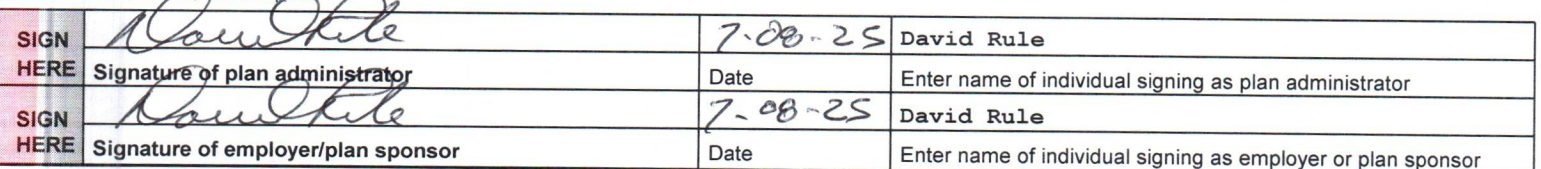 SIGN HERE David Rule 7-08-25 David Rule
Signature of plan administrator Date Enter name of individual signing as plan administrator
SIGN HERE David Rule 7-08-25 David Rule
Signature of employer/plan sponsor Date Enter name of individual signing as employer or plan sponsor